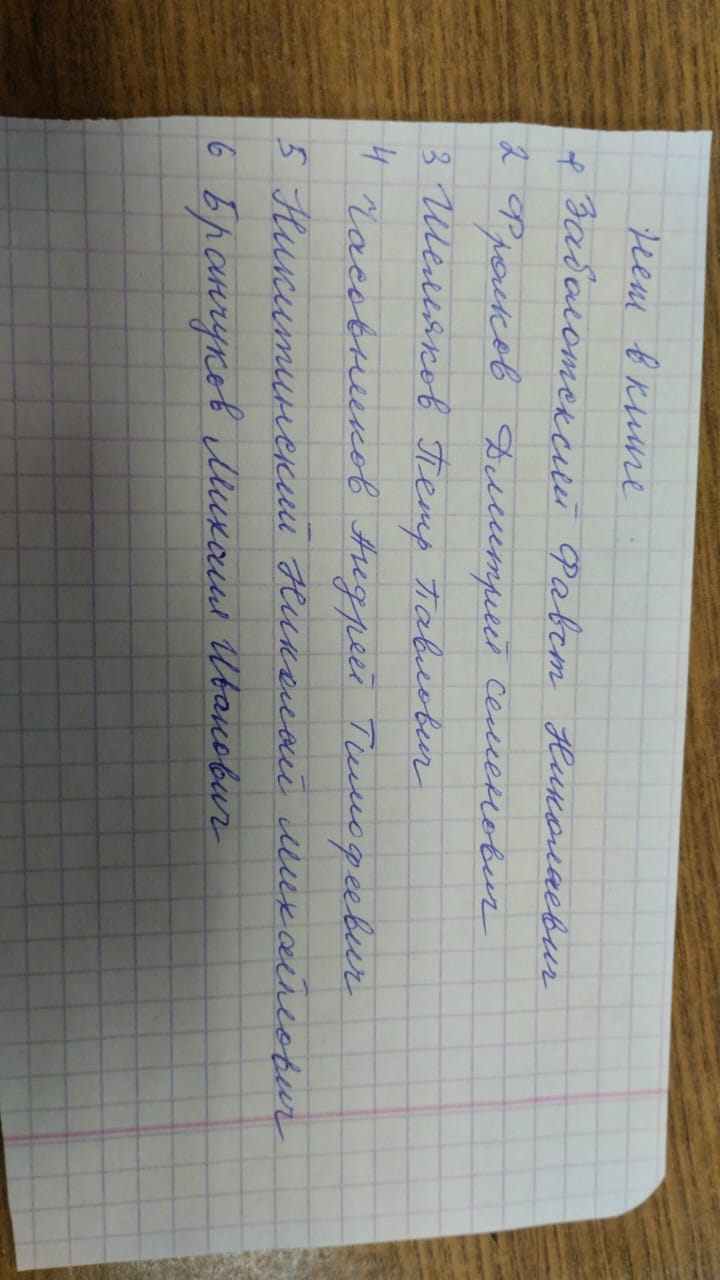 Нет в книге:
1 Заболотский Фавст Николаевич
2 Фролков Дмитрий Семенович
3 Шемяков Петр Павлович
4 Часовников Андрей Тимофеевич
5 Никитинский Николай Михайлович
6 Бранчуков Михаил Иванович